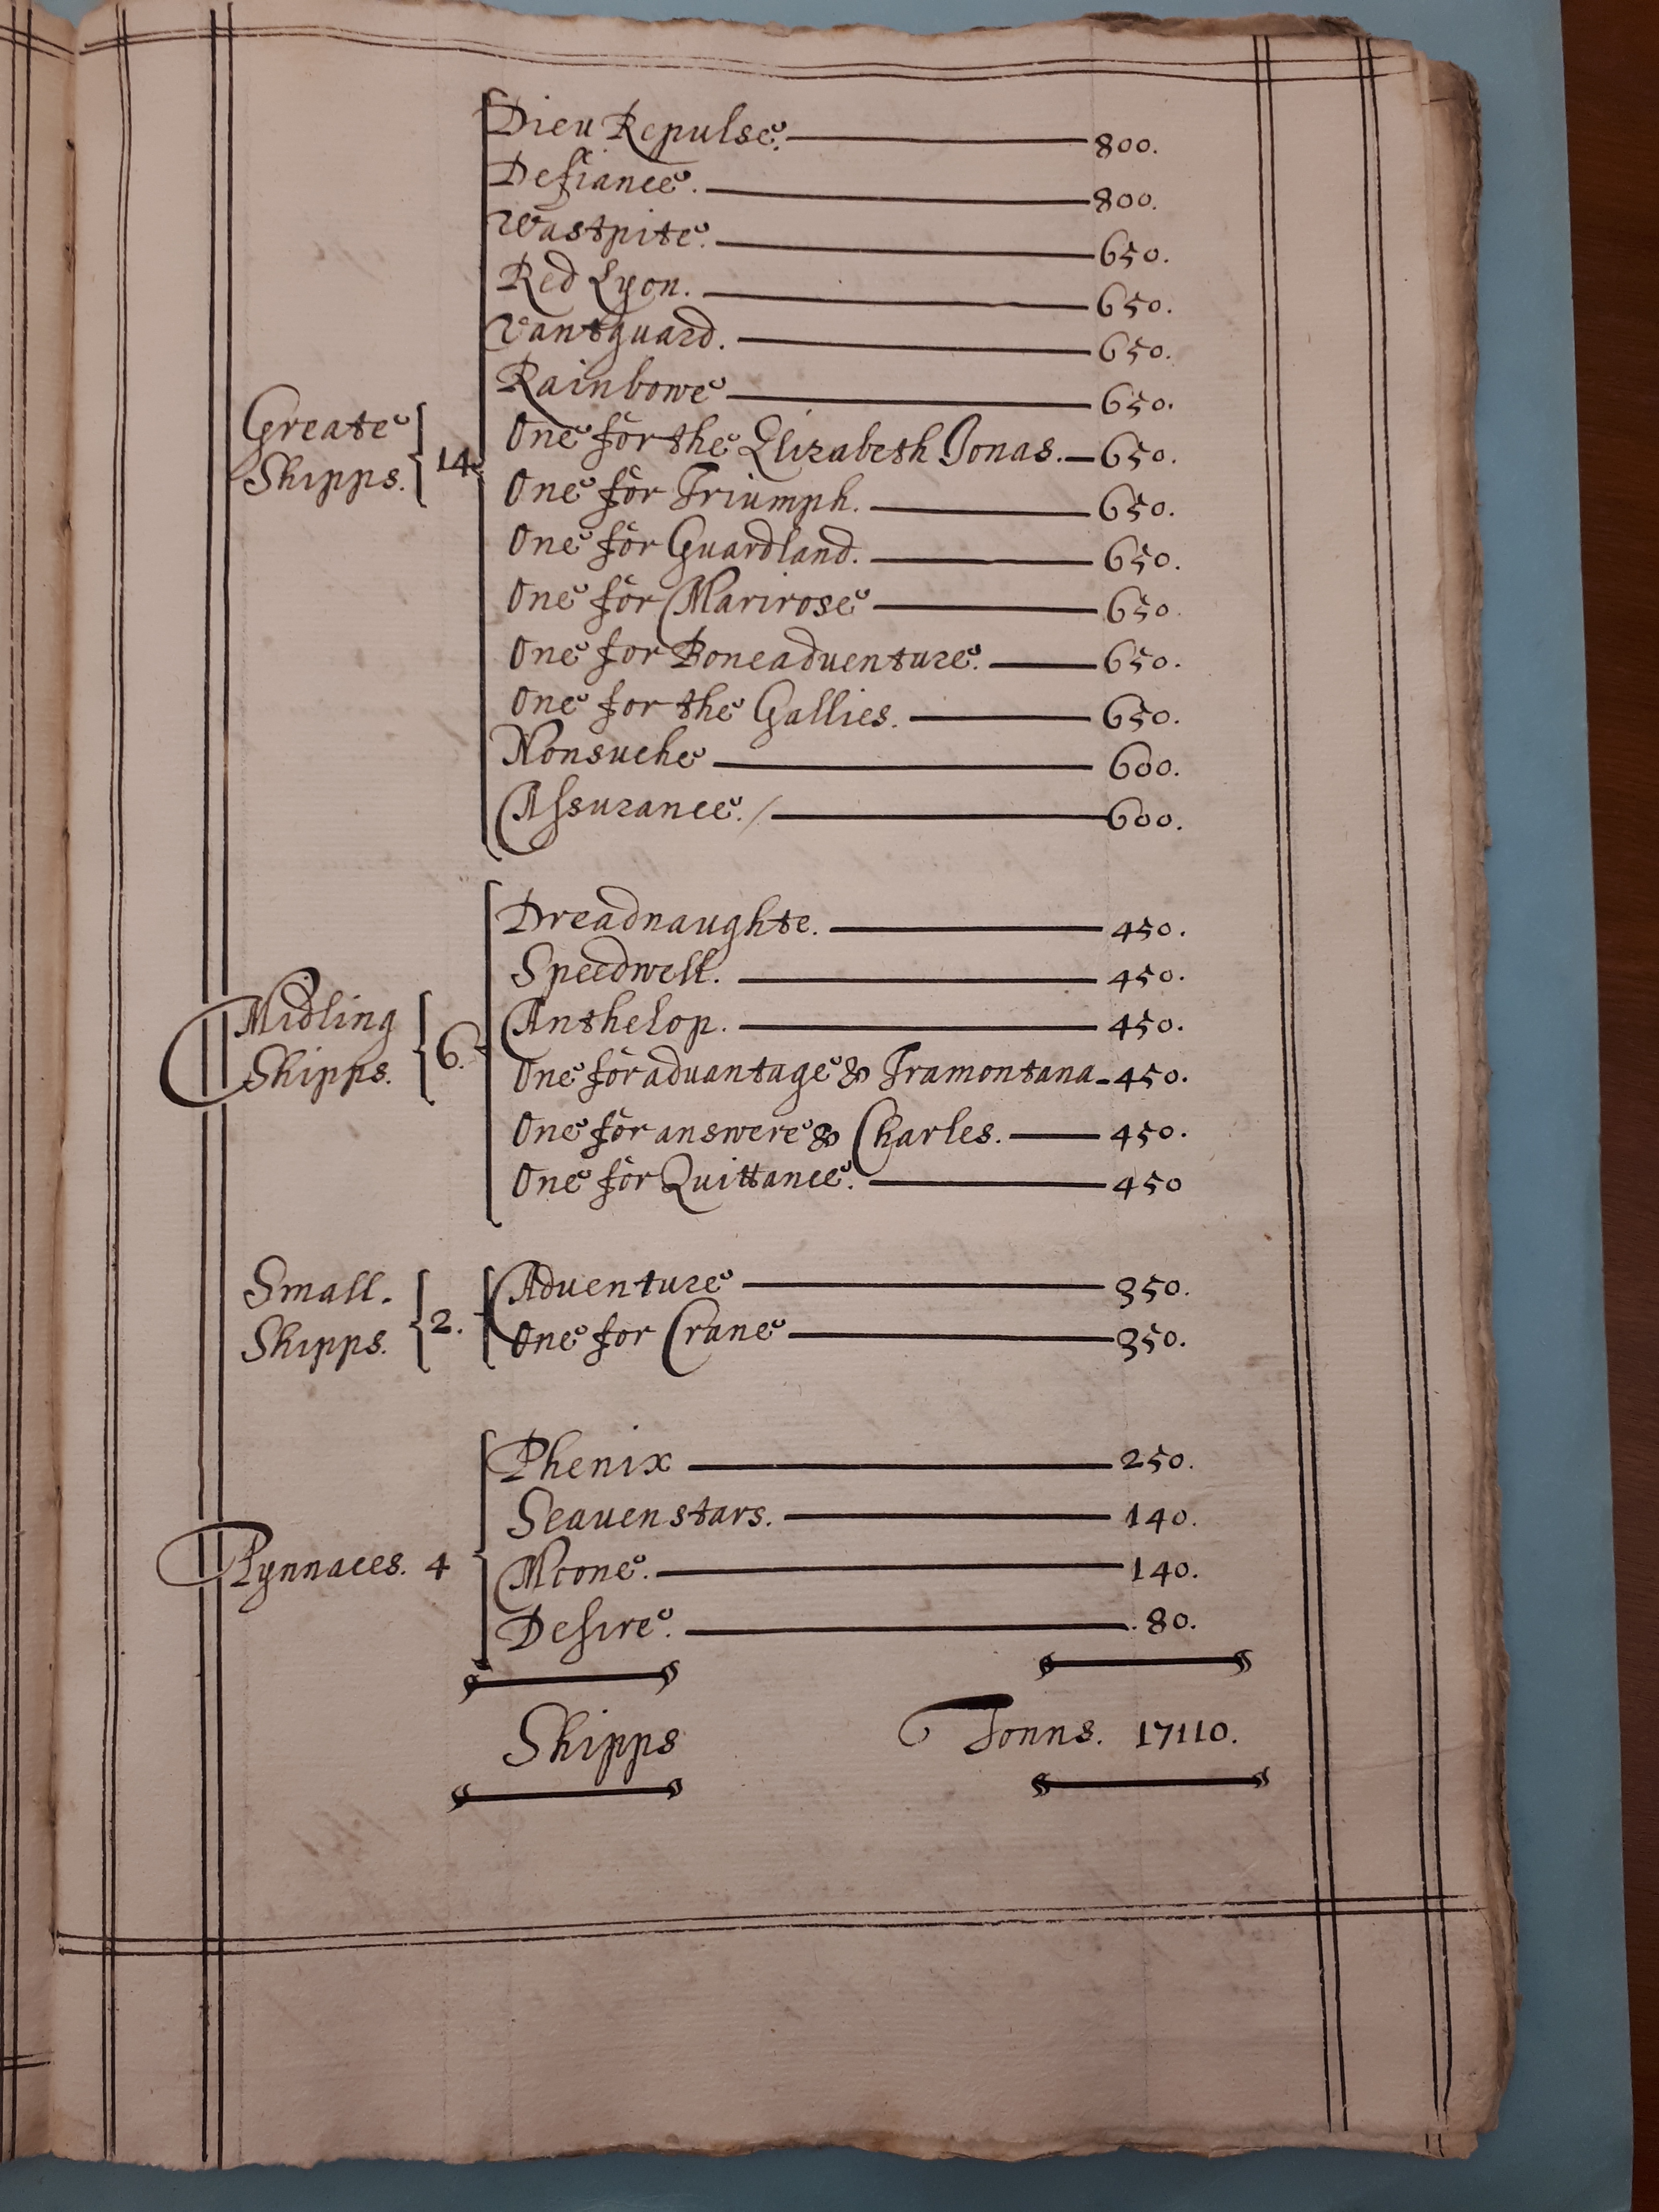 Dieu Repulse. 800.
Defiance. 800.
Wastpite. 650.
Red Lyon. 650.
Vantguard. 650.
Rainbowe 650.
Greate Shipps. 14. One for the Elizabeth Jonas. 650.
One for Triumph. 650.
One for Guardland. 650.
One for Marirose 650.
One for Boneadventure. 650.
One for the Gallies. 650.
Nonsuche 600.
Assurance. / 600.
Dreadnaughte. 450.
Speedwell. 450.
Midling Shipps. 6. Anthelop. 450.
One for advantage & Tramontana 450.
One for answere & Charles. 450.
One for Quittance. 450
Small. Shipps. 2. Adventure 350.
One for Crane 350.
Phenix 250.
Seauenstars. 140.
Pynnaces. 4 Moone. 140.
Desire. 80.
Shipps Tonns. 17110.